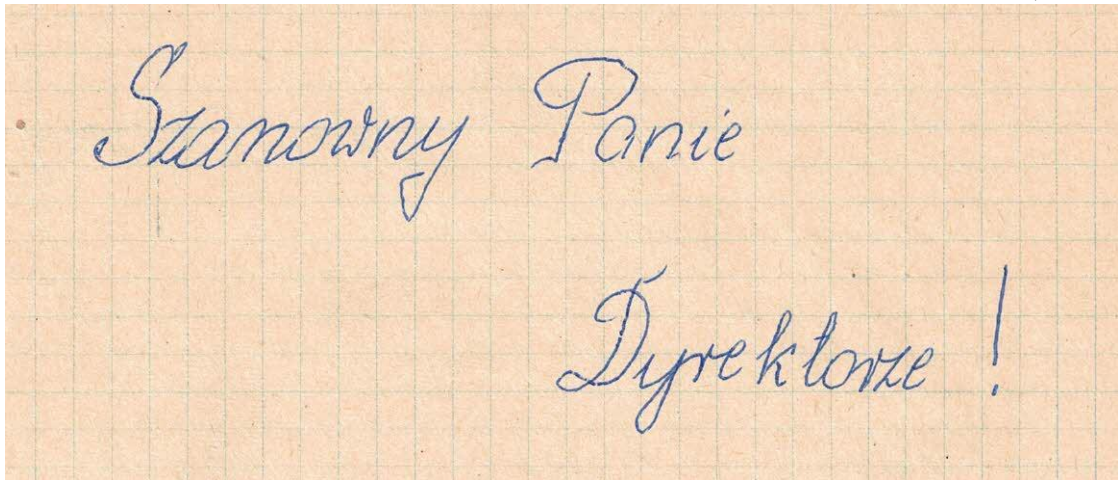 Szanowny Panie
Dyrektorze !